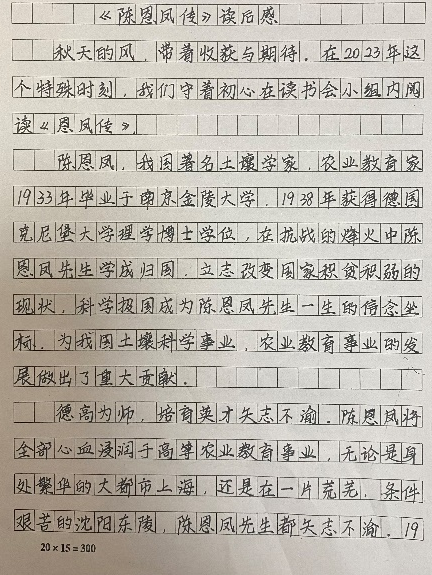 《陈恩凤传》读后感
秋天的风，带着收获与期待。在2023年这
个特殊时刻，我们守着初心在读书会小组内阅
读《恩凤传》。
陈恩凤，我国著名土壤学家，农业教育家
1933年毕业于南京金陵大学，1938年获得德国
克尼堡大学理学博士学位，在抗战的烽火中陈
恩凤先生学成归国，立志改变国家积贫积弱的
现状，科学报国成为陈恩凤先生一生的信念坐
标，为我国土壤科学事业，农业教育事业的发
展做出了重大贡献。
德高为师，培育英才矢志不渝。陈恩凤将
全部心血浸润于高等农业教育事业，无论是身
处繁华的大都市上海，还是在一片荒芜，条件
艰苦的沈阳东陵，陈恩凤先生都矢志不渝。19
20×15=300